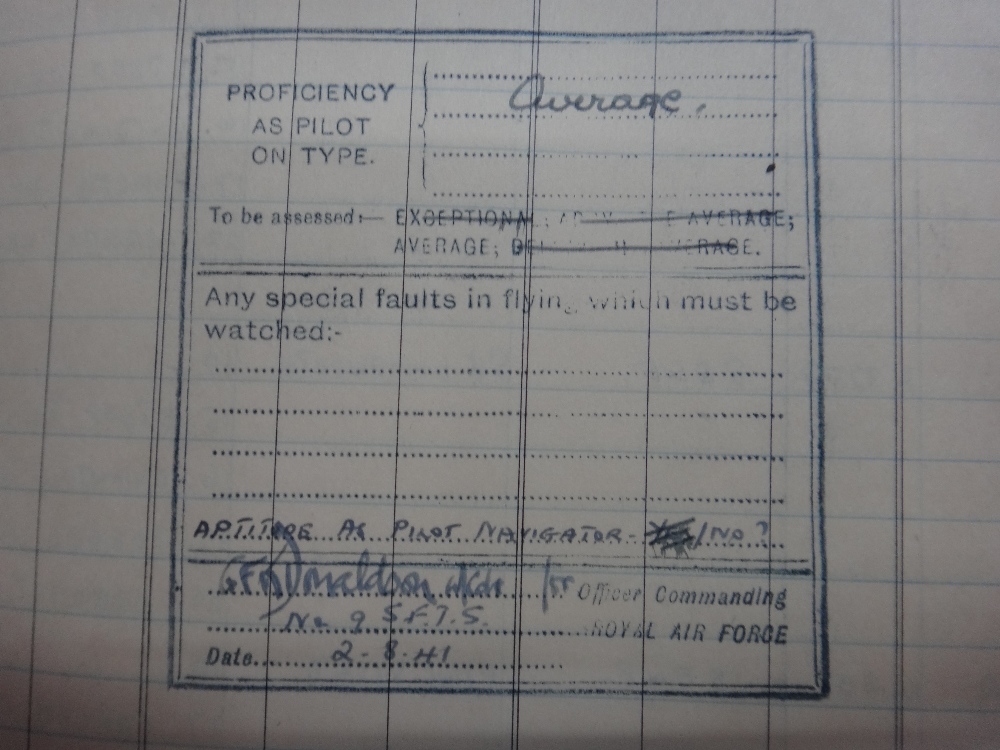 PROFICIENCY
AS PILOT
ON TYPE.
Average.
To be assessed:— EXCEPTIONAL; ABOVE THE AVERAGE;
AVERAGE; BELOW THE AVERAGE.
Any special faults in flying which must be
watched:-
APTITUDE AS PILOT NAVIGATOR - /NO?
Donaldson W/Cdr for Officer Commanding
No 9 S.F.T.S. ROYAL AIR FORCE
Date 2-8-41